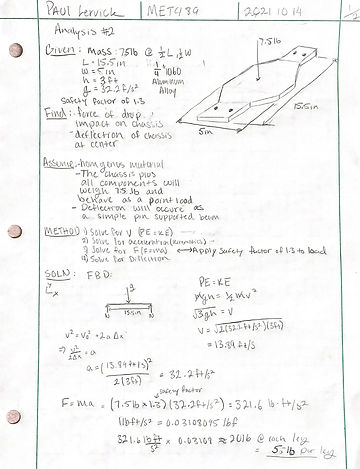 PAUL Lervick MET489 2021 10 14 1/2
Analysis #2
Given: Mass: 7.5lb @ ½L ½W
L = 15.5in
W = 5in
h = 3ft
g = 32.2 ft/s²
Safety factor of 1.3
¼" 1060
Aluminum
Alloy
7.5lb
15.5in
5in
Find: - force of drop
impact on chassis
- deflection of chassis
at center
Assume: - homogenus material
- The chassis plus
all components will
weigh 7.5 lb and
behave as a point load
- Deflection will occure as
a simple pin supported beam
METHOD 1) Solve for V (PE=KE)
2) Solve for acceleration (kinematics)
3) Solve for F(=ma) Apply safety factor of 1.3 to load
4) Solve for Deflection
SOLN: FBD:
y
x
PE = KE
mgh = ½mv²
√2gh = V
V = √2(32.2ft/s²)(3ft)
= 13.89 ft/s
V² = V₀² + 2aΔx
⇒ V²/2Δx = a
a = (13.89ft/s)²/2(3ft) = 32.2 ft/s²
safety factor
F = ma = (7.5lb × 1.3)(32.2ft/s²) = 321.6 lb·ft/s²
1 lb ft/s² = 0.03108095 lbf
321.6 lb ft/s² × 0.03108 ≈ 20lb @ each leg
= 5 lb per leg